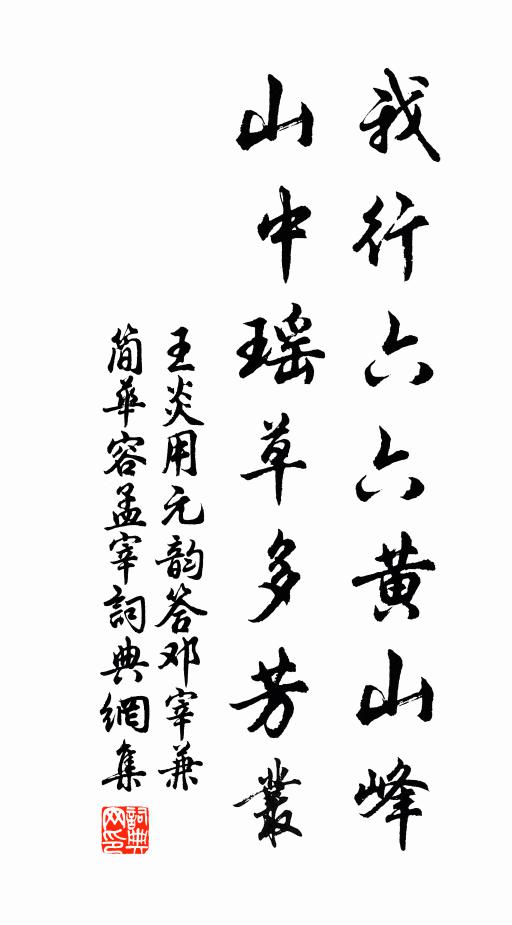 我行六六黄山峰
山中瑶草多芳叢
王炎用元韵答邓宰兼
简華容孟宰詞典網集
詞典网印